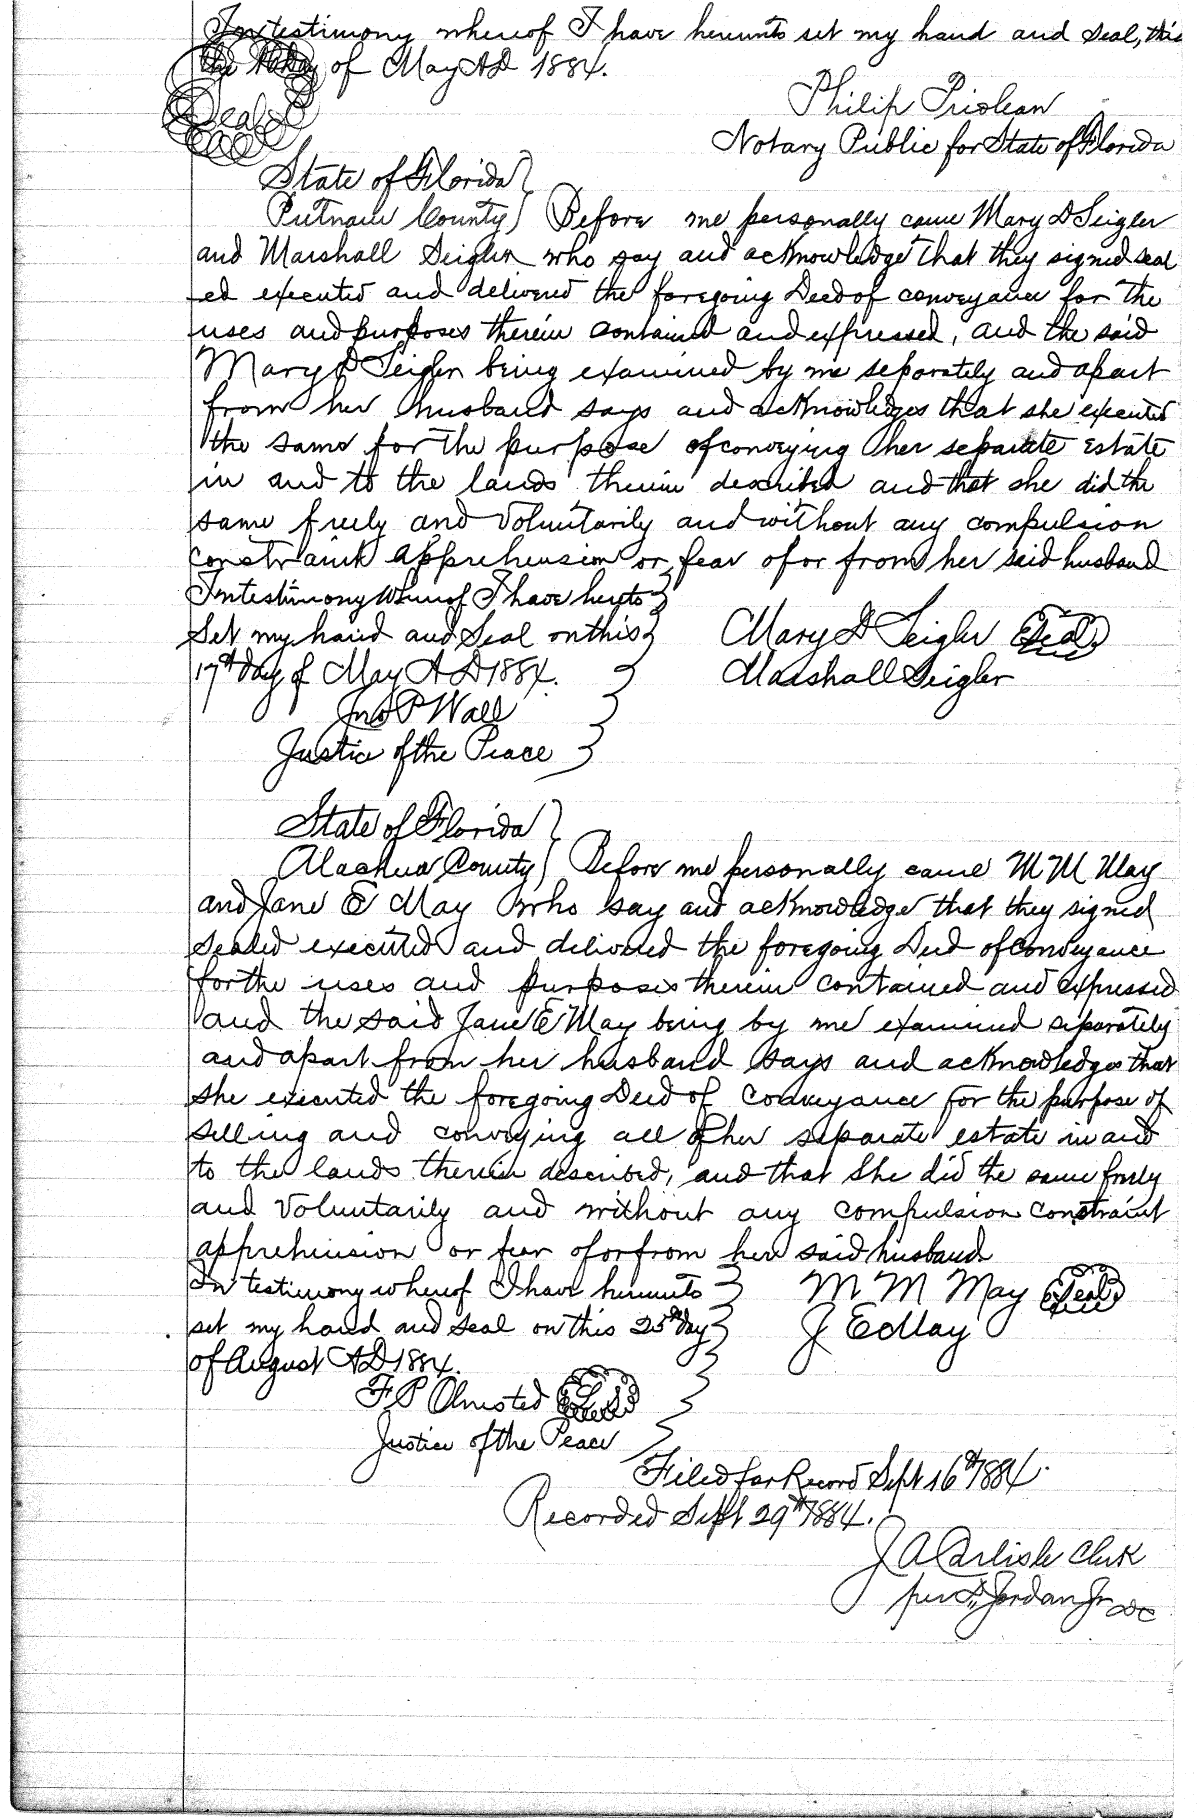 In testimony whereof I have hereunto set my hand and seal, this
the day of May AD 1884.
Seal
Philip Priolean
Notary Public for State of Florida
State of Florida }
Putnam County } Before me personally came Mary D Seigler
and Marshall Seigler who say and acknowledge that they signed seal
ed executed and delivered the foregoing Deed of conveyance for the
uses and purposes therein contained and expressed, and the said
Mary D Seigler being examined by me separately and apart
from her husband says and acknowledges that she executed
the same for the purpose of conveying her separate estate
in and to the lands therein described and that she did the
same freely and voluntarily and without any compulsion
constraint apprehension or fear of or from her said husband
In testimony whereof I have hereto }
Set my hand and Seal on this }
17th day of May A D 1884. }
Mary D Seigler Seal
Marshall Seigler
Jno P Wall }
Justice of the Peace }
State of Florida }
Alachua County } Before me personally came M M May
and Jane E May who say and acknowledge that they signed
sealed executed and delivered the foregoing Deed of conveyance
for the uses and purposes therein contained and expressed
and the said Jane E May being by me examined separately
and apart from her husband says and acknowledges that
she executed the foregoing Deed of conveyance for the purpose of
selling and conveying all of her separate estate in and
to the lands therein described, and that she did the same freely
and voluntarily and without any compulsion constraint
apprehension or fear of or from her said husband
In testimony whereof I have hereunto }
set my hand and seal on this 25th day }
of August AD 1884. }
M M May Seal
J E May
F P Olmsted L S }
Justice of the Peace }
Filed for Record Sept 16th 1884.
Recorded Sept 29th 1884.
J A Carlisle Clerk
per Jordan Jr DC